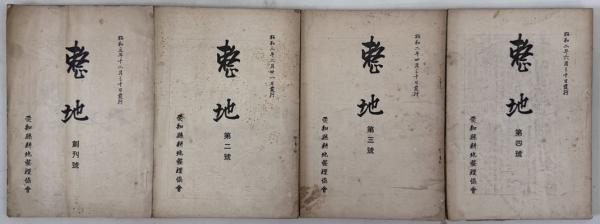 昭和元年十二月三十日發行
整地
創刊號
愛知縣耕地整理協會
昭和二年二月廿一日發行
整地
第二號
愛知縣耕地整理協會
昭和二年四月三十日發行
整地
第三號
愛知縣耕地整理協會
昭和二年六月三十日發行
整地
第四號
愛知縣耕地整理協會